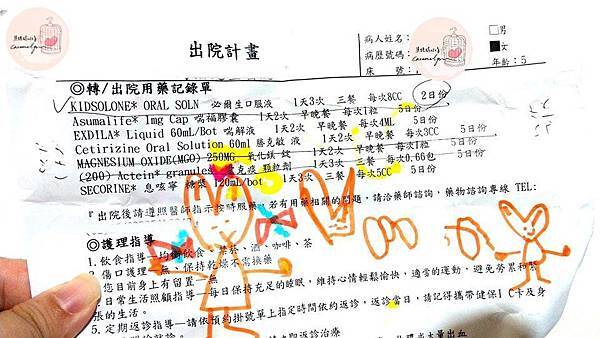 出院計畫
病人姓名：
□男
病歷號碼：
■女
床　號：
年齡：5
◎轉/出院用藥記錄單
KIDSOLONE* ORAL SOLN 必爾生口服液 1天3次 三餐 每次8CC 2日份
Asumalife* 1mg Cap 喘福膠囊 1天2次 早晚餐 每次1粒 5日份
EXDILA* Liquid 60mL/Bot 喘解液 1天2次 早晚餐 每次4ML 5日份
Cetirizine Oral Solution 60ml 勝克敏 液 1天2次 早晚餐 每次3CC 5日份
MAGNESIUM OXIDE(MGO) 250MG 氧化鎂 錠 1天2次 早晚餐 每次1粒 5日份
(200) Actein* granules 克痰 顆粒劑 1天3次 三餐 每次0.66包 5日份
SECORINE* 息咳寧 糖漿 120mL/bot 1天3次 三餐 5日份
『出院後請遵照醫師指示按時服藥，若有用藥相關的問題，請洽藥師諮詢，藥物諮詢專線 TEL:
◎護理指導
1. 飲食指導—均衡飲食、禁菸、酒、咖啡、茶
2. 傷口護理—無、保持乾燥不需換藥
您目前身上有留置—無
日常生活照顧指導—每日保持充足的睡眠，維持心情輕鬆愉快，適當的運動，避免勞累和緊
張的生活。
5. 定期返診指導—請依預約掛號單上指定時間依約返診，返診當日，請記得攜帶健保IC卡及身
返診治療
大量出血